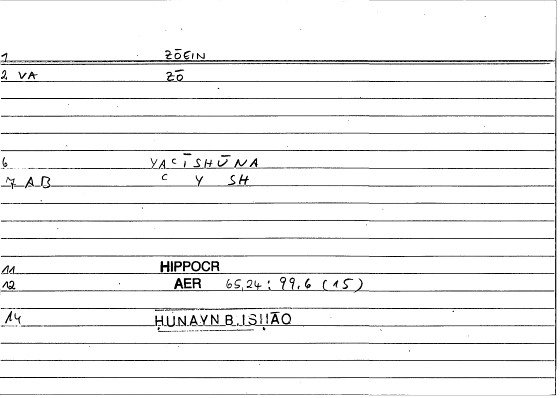 1 ZŌEIN
2 VA ZŌ
6 YAᶜĪSHŪNA
7 AB ᶜ Y SH
11 HIPPOCR
12 AER 65,24 : 99,6 (15)
14 ḤUNAYN B. ISḤĀQ